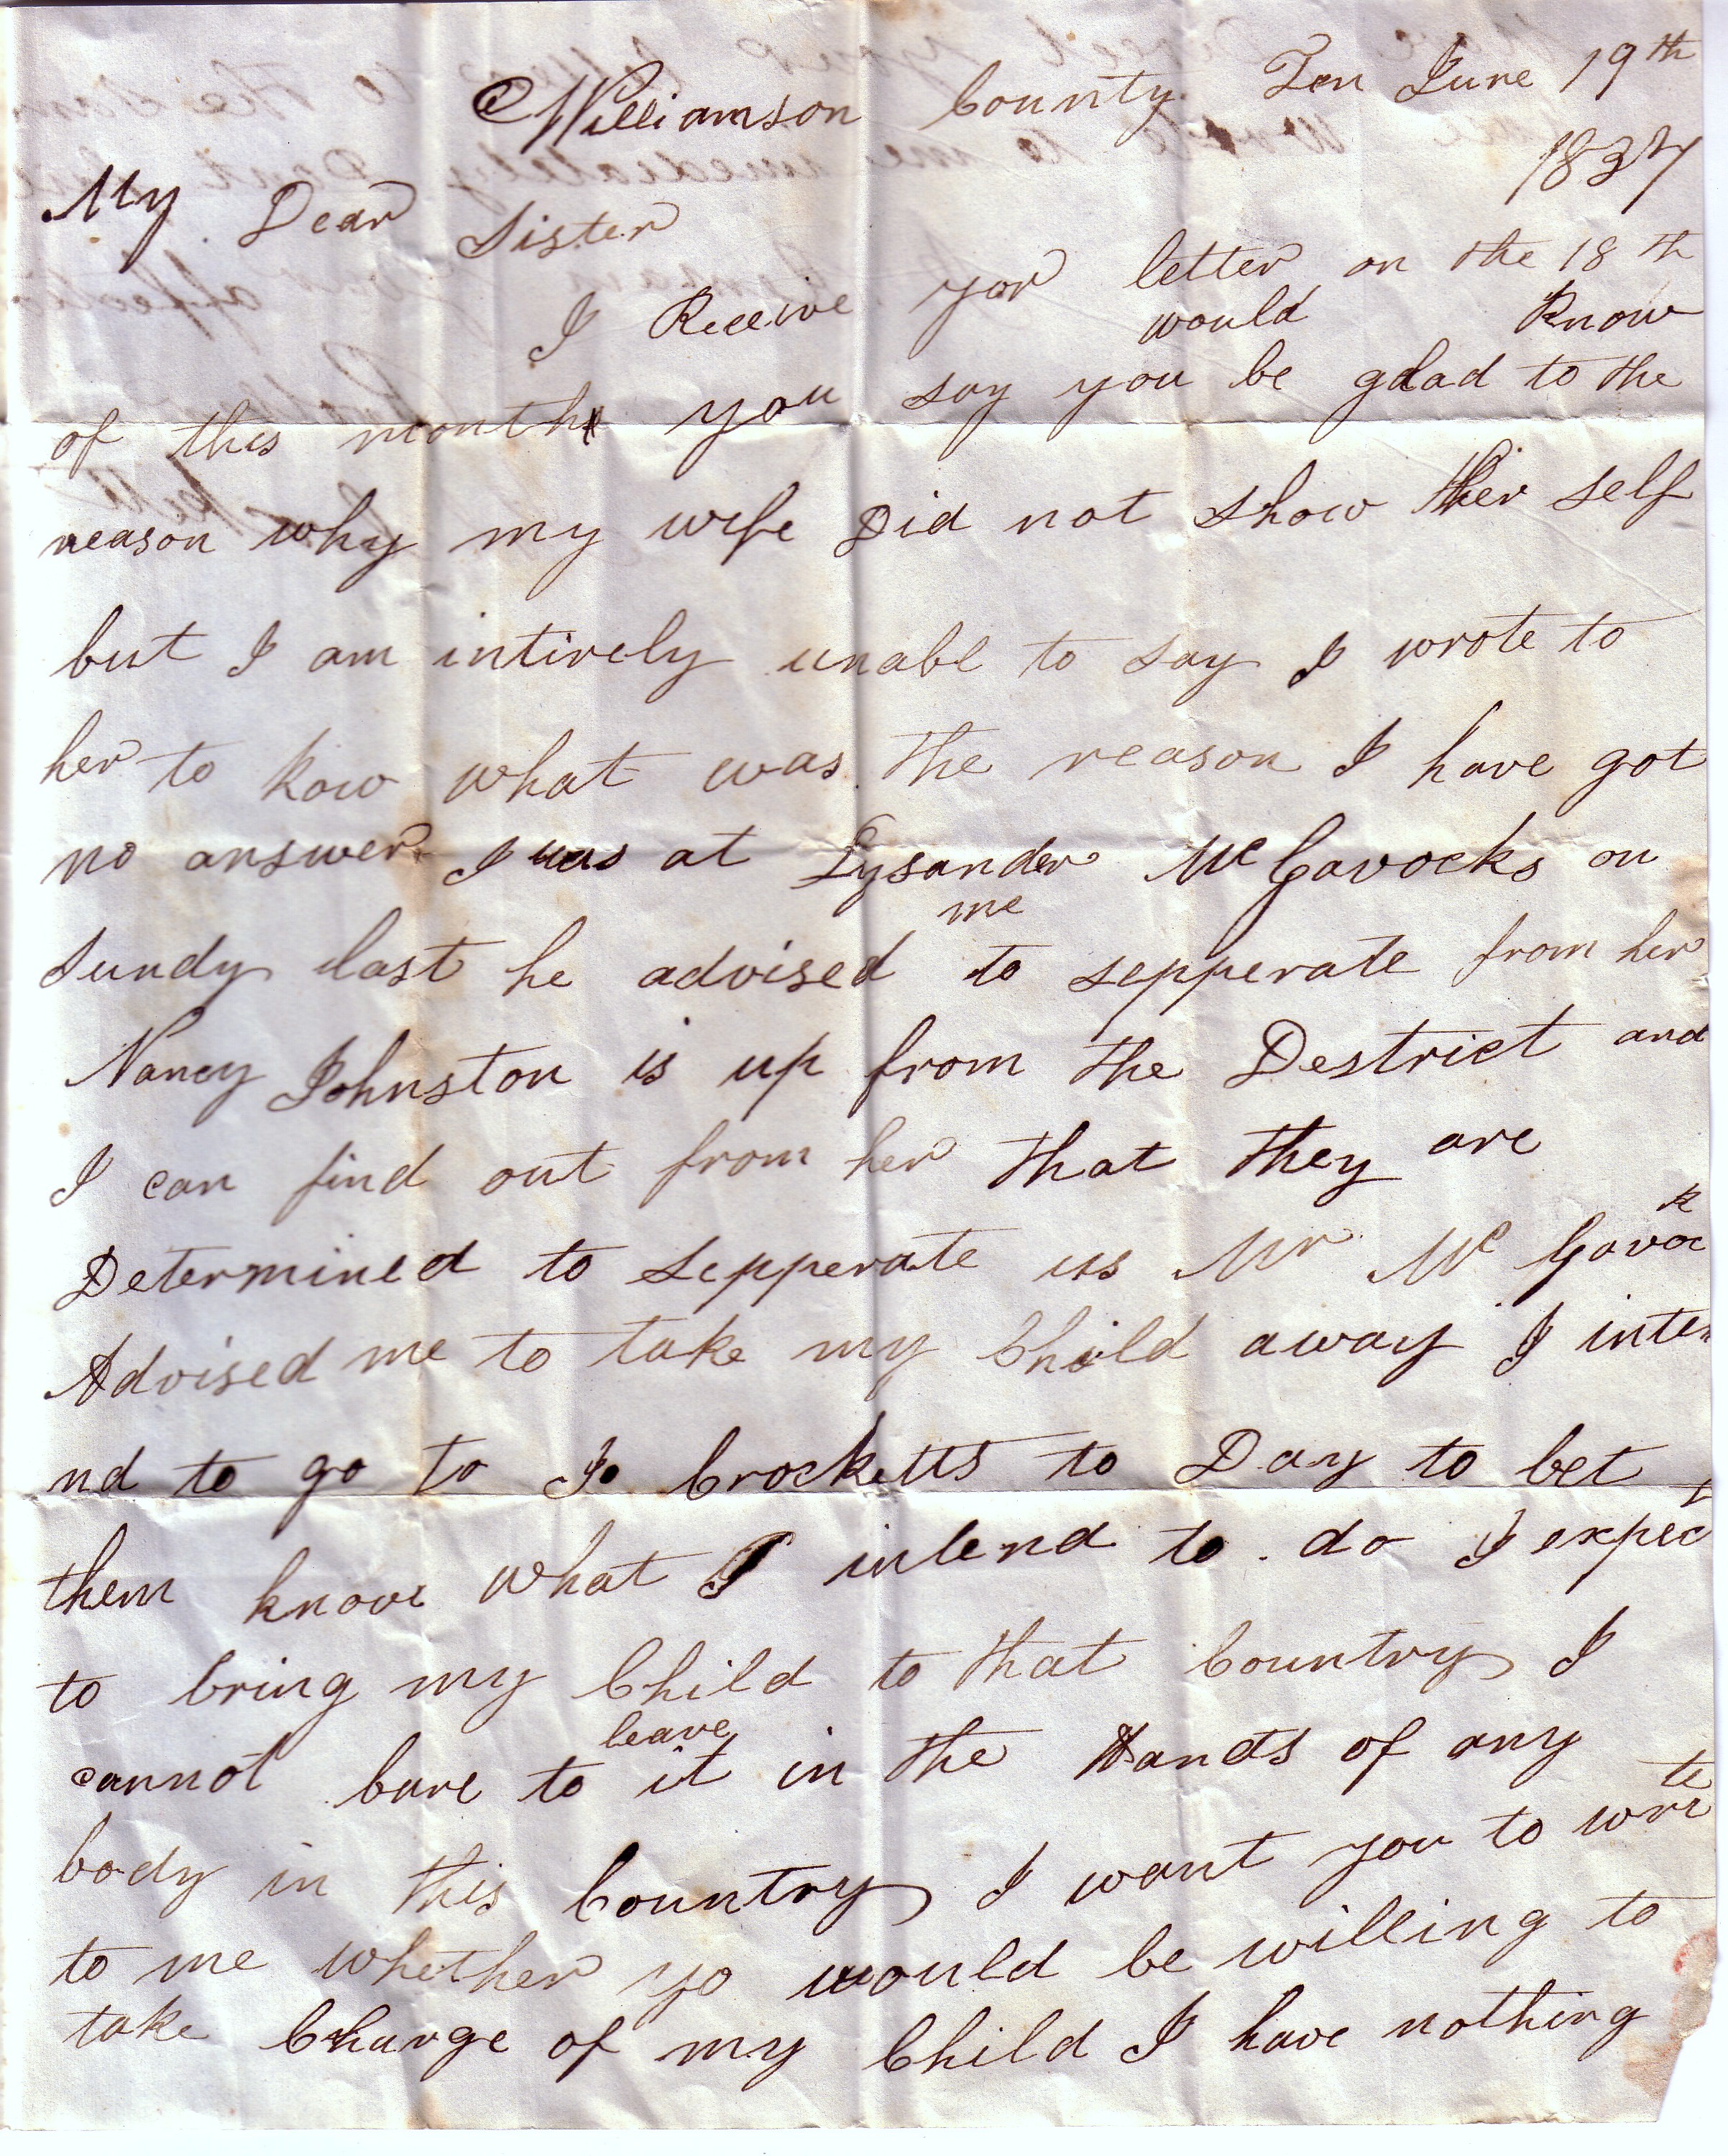 Williamson County. Ten June 19th
1837
My Dear Sister
I Receive yor letter on the 18th
would know
of this month you say you be glad to the
reason why my wife Did not show her self
but I am intirely unabl to say I wrote to
her to kow what was the reason I have got
no answer I was at Lysander McGavocks on
me
Sundy last he advised to sepperate from her
Nancy Johnston is up from the Destrict and
I can find out from her that they are
k
Determined to sepperate us Mr McGavoc
Advised me to take my Child away I inte
nd to go to Jo Crocketts to Day to let
t
them know what I intend to do I expec
to bring my Child to that Country I
leave
cannot bare to it in the Hands of any
te
body in this Country I want you to wri
to me whether yo would be willing to
take Charge of my Child I have nothing